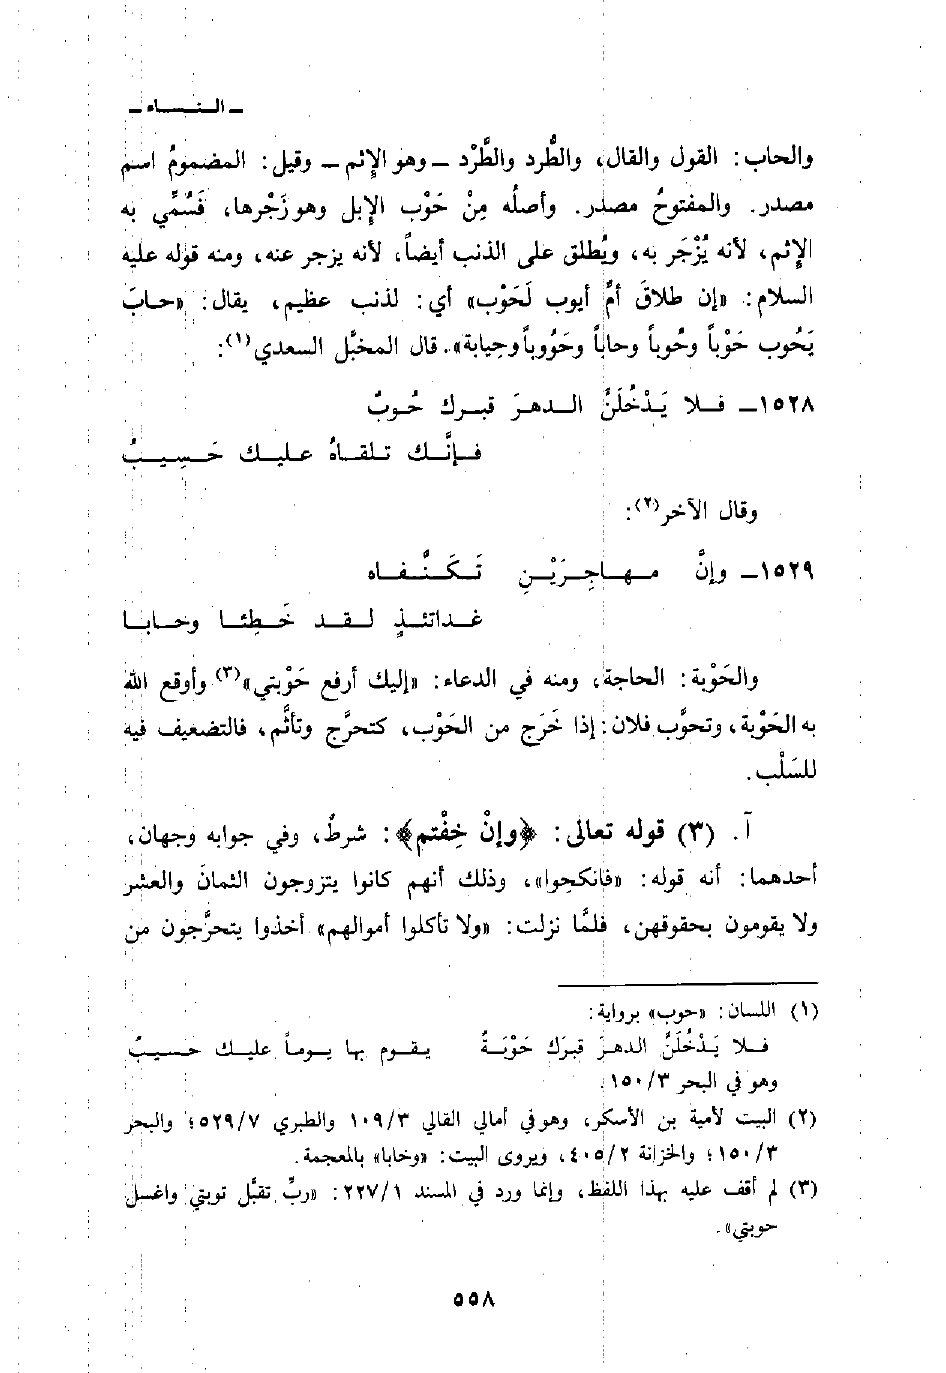 ـ النساء ـ
والحاب: القول والقال، والطُّرد والطَّرْد ـ وهو الإِثم ـ وقيل: المضمومُ اسم
مصدر. والمفتوحُ مصدر. وأصلُه مِنْ حَوْب الإِبل وهو زَجْرها، فَسُمِّي به
الإِثم، لأنه يُزْجَر به، ويُطلق على الذنب أيضاً، لأنه يزجر عنه، ومنه قوله عليه
السلام: «إن طلاقَ أمِّ أيوب لَحَوْب» أي: لذنب عظيم، يقال: «حابَ
يَحُوب حَوْباً وحُوباً وحاباً وحَوُوباً وحِيابة». قال المخبَّل السعدي(١):
١٥٢٨ـ فلا يَدْخُلَنَّ الدهرَ قبرك حُوبٌ
فإنَّك تلقاهُ عليك حَسِيبُ
وقال الآخر(٢):
١٥٢٩ـ وإنَّ مهاجِرَيْنِ تَكَنَّفاه
غداتئذٍ لقد خَطِئا وحابا
والحَوْبة: الحاجة، ومنه في الدعاء: «إليك أرفع حَوْبتي»(٣) وأوقع اللَّه
به الحَوْبة، وتحوَّب فلان: إذا خَرَج من الحَوْب، كتحرَّج وتأثَّم، فالتضعيف فيه
للسَلْب.
آ. (٣) قوله تعالى: ﴿وإنْ خِفْتم﴾: شرطٌ، وفي جوابه وجهان،
أحدهما: أنه قوله: «فانكحوا»، وذلك أنهم كانوا يتزوجون الثمانَ والعشر
ولا يقومون بحقوقهن، فلمَّا نزلت: «ولا تأكلوا أموالهم» أخذوا يتحرَّجون من
(١) اللسان: «حوب» برواية:
فلا يَدْخُلَنَّ الدهرَ قبرَك حَوْبَةٌ يقوم بها يوماً عليك حسيبُ
وهو في البحر ١٥٠/٣.
(٢) البيت لأمية بن الأسكر، وهو في أمالي القالي ١٠٩/٣ والطبري ٥٢٩/٧؛ والبحر
١٥٠/٣؛ والخزانة ٤٠٥/٢، ويروى البيت: «وخابا» بالمعجمة.
(٣) لم أقف عليه بهذا اللفظ، وإنما ورد في المسند ٢٢٧/١: «ربِّ تقبَّل توبتي واغسل
حوبتي».
٥٥٨